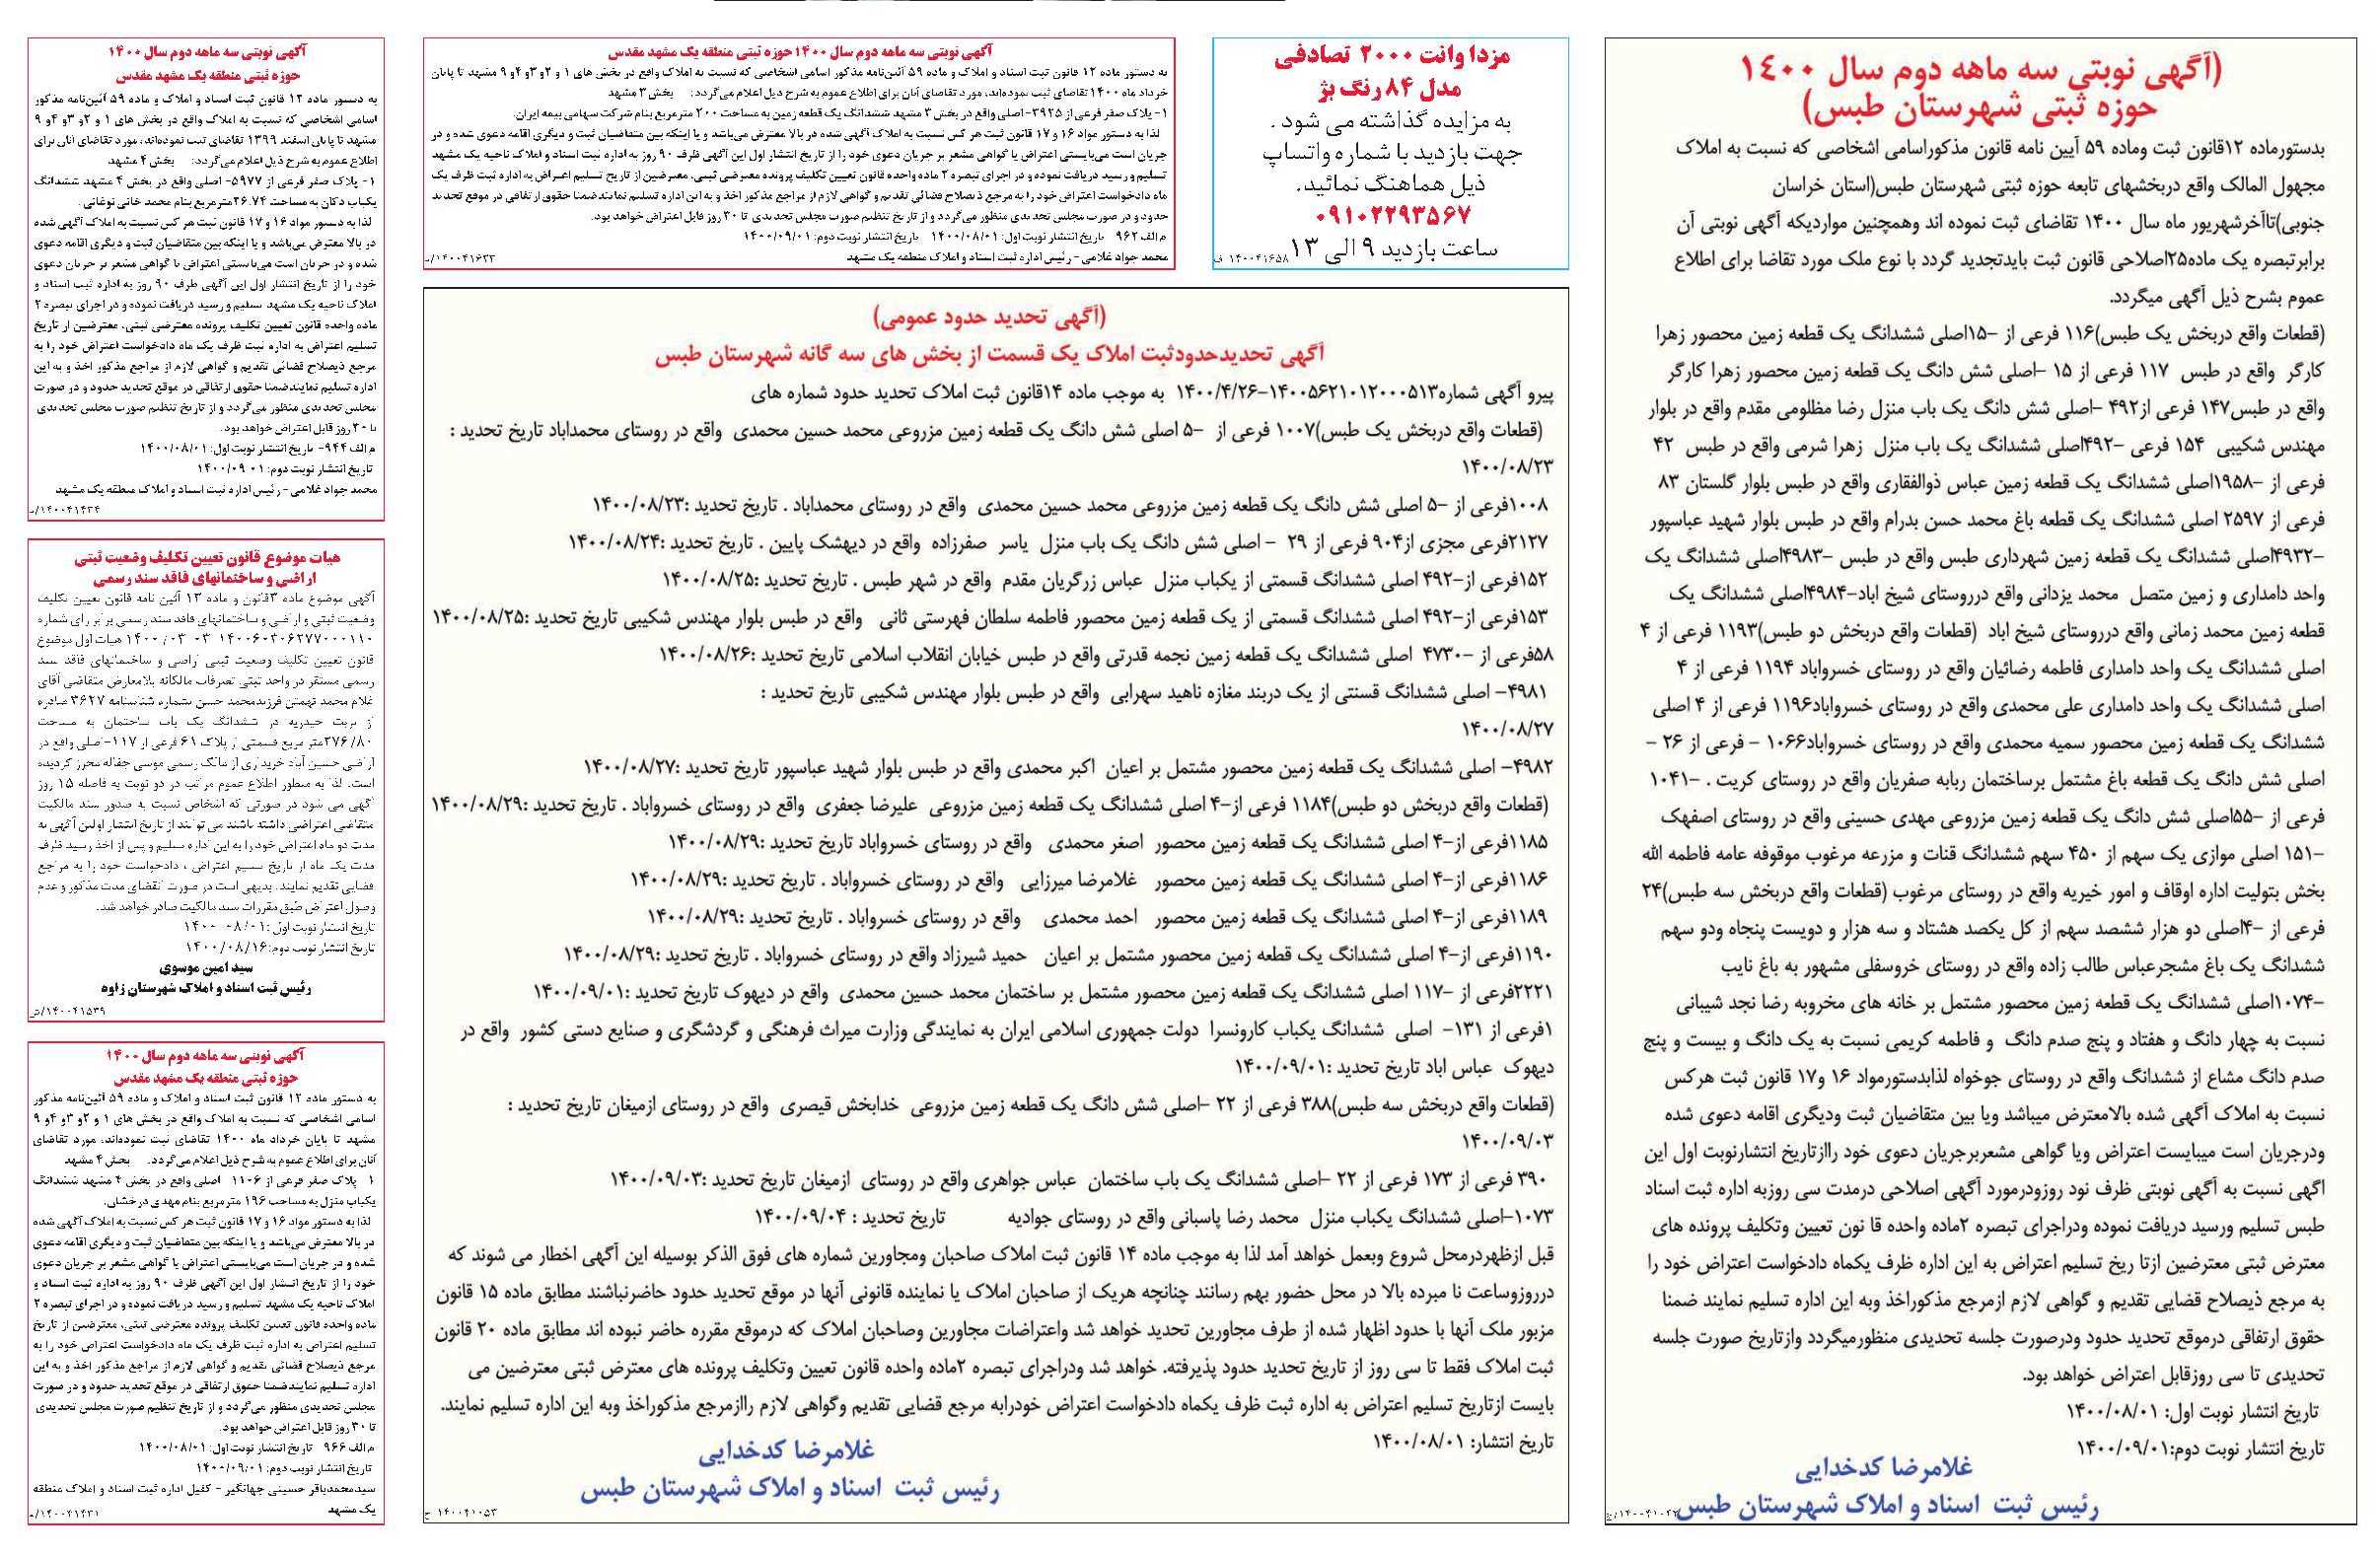 (آگهی نوبتی سه ماهه دوم سال ۱۴۰۰
حوزه ثبتی شهرستان طبس)
بدستورماده ۱۲قانون ثبت وماده ۵۹ آیین نامه قانون مذکوراسامی اشخاصی که نسبت به املاک
مجهول المالک واقع دربخشهای تابعه حوزه ثبتی شهرستان طبس(استان خراسان
جنوبی)تاآخرشهریور ماه سال ۱۴۰۰ تقاضای ثبت نموده اند وهمچنین مواردیکه آگهی نوبتی آن
برابرتبصره یک ماده۲۵اصلاحی قانون ثبت بایدتجدید گردد با نوع ملک مورد تقاضا برای اطلاع
عموم بشرح ذیل آگهی میگردد.
(قطعات واقع دربخش یک طبس)۱۱۶ فرعی از –۱۵اصلی ششدانگ یک قطعه زمین محصور زهرا
کارگر واقع در طبس ۱۱۷ فرعی از ۱۵ –اصلی شش دانگ یک قطعه زمین محصور زهرا کارگر
واقع در طبس۱۴۷ فرعی از۴۹۲ –اصلی شش دانگ یک باب منزل رضا مظلومی مقدم واقع در بلوار
مهندس شکیبی ۱۵۴ فرعی –۴۹۲اصلی ششدانگ یک باب منزل زهرا شرمی واقع در طبس ۴۲
فرعی از –۱۹۵۸اصلی ششدانگ یک قطعه زمین عباس ذوالفقاری واقع در طبس بلوار گلستان ۸۳
فرعی از ۲۵۹۷ اصلی ششدانگ یک قطعه باغ محمد حسن بدرام واقع در طبس بلوار شهید عباسپور
–۴۹۳۲اصلی ششدانگ یک قطعه زمین شهرداری طبس واقع در طبس –۴۹۸۳اصلی ششدانگ یک
واحد دامداری و زمین متصل محمد یزدانی واقع درروستای شیخ اباد–۴۹۸۴اصلی ششدانگ یک
قطعه زمین محمد زمانی واقع درروستای شیخ اباد (قطعات واقع دربخش دو طبس)۱۱۹۳ فرعی از ۴
اصلی ششدانگ یک واحد دامداری فاطمه رضائیان واقع در روستای خسرواباد ۱۱۹۴ فرعی از ۴
اصلی ششدانگ یک واحد دامداری علی محمدی واقع در روستای خسرواباد۱۱۹۶ فرعی از ۴ اصلی
ششدانگ یک قطعه زمین محصور سمیه محمدی واقع در روستای خسرواباد۱۰۶۶ – فرعی از ۲۶ –
اصلی شش دانگ یک قطعه باغ مشتمل برساختمان ربابه صفریان واقع در روستای کریت . –۱۰۴۱
فرعی از –۵۵اصلی شش دانگ یک قطعه زمین مزروعی مهدی حسینی واقع در روستای اصفهک
–۱۵۱ اصلی موازی یک سهم از ۴۵۰ سهم ششدانگ قنات و مزرعه مرغوب موقوفه عامه فاطمه الله
بخش بتولیت اداره اوقاف و امور خیریه واقع در روستای مرغوب (قطعات واقع دربخش سه طبس)۲۴
فرعی از –۴اصلی دو هزار ششصد سهم از کل یکصد هشتاد و سه هزار و دویست پنجاه ودو سهم
ششدانگ یک باغ مشجرعباس طالب زاده واقع در روستای خروسفلی مشهور به باغ نایب
–۱۰۷۴اصلی ششدانگ یک قطعه زمین محصور مشتمل بر خانه های مخروبه رضا نجد شیبانی
نسبت به چهار دانگ و هفتاد و پنج صدم دانگ و فاطمه کریمی نسبت به یک دانگ و بیست و پنج
صدم دانگ مشاع از ششدانگ واقع در روستای جوخواه لذابدستورمواد ۱۶ و۱۷ قانون ثبت هرکس
نسبت به املاک آگهی شده بالامعترض میباشد ویا بین متقاضیان ثبت ودیگری اقامه دعوی شده
ودرجریان است میبایست اعتراض ویا گواهی مشعربرجریان دعوی خود رااز‌تاریخ انتشارنوبت اول این
اگهی نسبت به آگهی نوبتی ظرف نود روزودرمورد آگهی اصلاحی درمدت سی روزبه اداره ثبت اسناد
طبس تسلیم ورسید دریافت نموده ودراجرای تبصره ۲ماده واحده قا نون تعیین وتکلیف پرونده های
معترض ثبتی معترضین ازتا ریخ تسلیم اعتراض به این اداره ظرف یکماه دادخواست اعتراض خود را
به مرجع ذیصلاح قضایی تقدیم و گواهی لازم ازمرجع مذکوراخذ وبه این اداره تسلیم نمایند ضمنا
حقوق ارتفاقی درموقع تحدید حدود ودرصورت جلسه تحدیدی منظورمیگردد وازتاریخ صورت جلسه
تحدیدی تا سی روزقابل اعتراض خواهد بود.
تاریخ انتشار نوبت اول: ۱۴۰۰/۰۸/۰۱
تاریخ انتشار نوبت دوم:۱۴۰۰/۰۹/۰۱
غلامرضا کدخدایی
رئیس ثبت اسناد و املاک شهرستان طبس
مزدا وانت ۲۰۰۰ تصادفی
مدل ۸۴ رنگ بژ
به مزایده گذاشته می شود .
جهت بازدید با شماره واتساپ
ذیل هماهنگ نمائید.
۰۹۱۰۲۲۹۳۵۶۷
ساعت بازدید ۹ الی ۱۳
۱۴۰۰۴۱۶۵۸ ف
آگهی نوبتی سه ماهه دوم سال ۱۴۰۰ حوزه ثبتی منطقه یک مشهد مقدس
به دستور ماده ۱۲ قانون ثبت اسناد و املاک و ماده ۵۹ آئین‌نامه مذکور اسامی اشخاصی که نسبت به املاک واقع در بخش های ۱ و ۲و ۳و ۴و ۹ مشهد تا پایان
خرداد ماه ۱۴۰۰ تقاضای ثبت نموده‌اند، مورد تقاضای آنان برای اطلاع عموم به شرح ذیل اعلام می‌گردد: بخش ۳ مشهد
۱- پلاک صفر فرعی از ۳۹۲۵- اصلی واقع در بخش ۳ مشهد ششدانگ یک قطعه زمین به مساحت ۲۰۰ مترمربع بنام شرکت سهامی بیمه ایران:
لذا به دستور مواد ۱۶ و ۱۷ قانون ثبت هر کس نسبت به املاک آگهی شده در بالا معترض می‌باشد و یا اینکه بین متقاضیان ثبت و دیگری اقامه دعوی شده و در
جریان است می‌بایستی اعتراض یا گواهی مشعر بر جریان دعوی خود را از تاریخ انتشار اول این آگهی ظرف ۹۰ روز به اداره ثبت اسناد و املاک ناحیه یک مشهد
تسلیم و رسید دریافت نموده و در اجرای تبصره ۲ ماده واحده قانون تعیین تکلیف پرونده معترضی ثبتی، معترضین از تاریخ تسلیم اعتراض به اداره ثبت ظرف یک
ماه دادخواست اعتراض خود را به مرجع ذیصلاح قضائی تقدیم و گواهی لازم از مراجع مذکور اخذ و به این اداره تسلیم نمایندضمنا حقوق ارتفاقی در موقع تحدید
حدود و در صورت مجلس تحدیدی منظور می‌گردد و از تاریخ تنظیم صورت مجلس تحدیدی تا ۳۰ روز قابل اعتراض خواهد بود.
م الف ۹۶۲ تاریخ انتشار نوبت اول: ۱۴۰۰/۰۸/۰۱ تاریخ انتشار نوبت دوم: ۱۴۰۰/۰۹/۰۱
محمد جواد غلامی – رئیس اداره ثبت اسناد و املاک منطقه یک مشهد
(آگهی تحدید حدود عمومی)
آگهی تحدیدحدودثبت املاک یک قسمت از بخش های سه گانه شهرستان طبس
پیرو آگهی شماره۱۴۰۰۵۶۲۱۰۱۲۰۰۰۵۱۳–۱۴۰۰/۴/۲۶ به موجب ماده ۱۴قانون ثبت املاک تحدید حدود شماره های
(قطعات واقع دربخش یک طبس)۱۰۰۷ فرعی از –۵ اصلی شش دانگ یک قطعه زمین مزروعی محمد حسین محمدی واقع در روستای محمداباد تاریخ تحدید :
۱۴۰۰/۰۸/۲۳
۱۰۰۸فرعی از –۵ اصلی شش دانگ یک قطعه زمین مزروعی محمد حسین محمدی واقع در روستای محمداباد . تاریخ تحدید :۱۴۰۰/۰۸/۲۳
۲۱۲۷فرعی مجزی از۹۰۴ فرعی از ۲۹ – اصلی شش دانگ یک باب منزل یاسر صفرزاده واقع در دیهشک پایین . تاریخ تحدید :۱۴۰۰/۰۸/۲۴
۱۵۲فرعی از–۴۹۲ اصلی ششدانگ قسمتی از یکباب منزل عباس زرگریان مقدم واقع در شهر طبس . تاریخ تحدید :۱۴۰۰/۰۸/۲۵
۱۵۳فرعی از–۴۹۲ اصلی ششدانگ قسمتی از یک قطعه زمین محصور فاطمه سلطان فهرستی ثانی واقع در طبس بلوار مهندس شکیبی تاریخ تحدید :۱۴۰۰/۰۸/۲۵
۵۸فرعی از –۴۷۳۰ اصلی ششدانگ یک قطعه زمین نجمه قدرتی واقع در طبس خیابان انقلاب اسلامی تاریخ تحدید :۱۴۰۰/۰۸/۲۶
۴۹۸۱– اصلی ششدانگ قسنتی از یک دربند مغازه ناهید سهرابی واقع در طبس بلوار مهندس شکیبی تاریخ تحدید :
۱۴۰۰/۰۸/۲۷
۴۹۸۲– اصلی ششدانگ یک قطعه زمین محصور مشتمل بر اعیان اکبر محمدی واقع در طبس بلوار شهید عباسپور تاریخ تحدید :۱۴۰۰/۰۸/۲۷
(قطعات واقع دربخش دو طبس)۱۱۸۴ فرعی از–۴ اصلی ششدانگ یک قطعه زمین مزروعی علیرضا جعفری واقع در روستای خسرواباد . تاریخ تحدید :۱۴۰۰/۰۸/۲۹
۱۱۸۵فرعی از–۴ اصلی ششدانگ یک قطعه زمین محصور اصغر محمدی واقع در روستای خسرواباد تاریخ تحدید :۱۴۰۰/۰۸/۲۹
۱۱۸۶فرعی از–۴ اصلی ششدانگ یک قطعه زمین محصور غلامرضا میرزایی واقع در روستای خسرواباد . تاریخ تحدید :۱۴۰۰/۰۸/۲۹
۱۱۸۹فرعی از–۴ اصلی ششدانگ یک قطعه زمین محصور احمد محمدی واقع در روستای خسرواباد . تاریخ تحدید :۱۴۰۰/۰۸/۲۹
۱۱۹۰فرعی از–۴ اصلی ششدانگ یک قطعه زمین محصور مشتمل بر اعیان حمید شیرزاد واقع در روستای خسرواباد . تاریخ تحدید :۱۴۰۰/۰۸/۲۹
۲۲۲۱فرعی از –۱۱۷ اصلی ششدانگ یک قطعه زمین محصور مشتمل بر ساختمان محمد حسین محمدی واقع در دیهوک تاریخ تحدید :۱۴۰۰/۰۹/۰۱
۱فرعی از ۱۳۱– اصلی ششدانگ یکباب کارونسرا دولت جمهوری اسلامی ایران به نمایندگی وزارت میراث فرهنگی و گردشگری و صنایع دستی کشور واقع در
دیهوک عباس اباد تاریخ تحدید :۱۴۰۰/۰۹/۰۱
(قطعات واقع دربخش سه طبس)۳۸۸ فرعی از ۲۲ –اصلی شش دانگ یک قطعه زمین مزروعی خدابخش قیصری واقع در روستای ازمیغان تاریخ تحدید :
۱۴۰۰/۰۹/۰۳
۳۹۰ فرعی از ۱۷۳ فرعی از ۲۲ –اصلی ششدانگ یک باب ساختمان عباس جواهری واقع در روستای ازمیغان تاریخ تحدید :۱۴۰۰/۰۹/۰۳
۱۰۷۳–اصلی ششدانگ یکباب منزل محمد رضا پاسبانی واقع در روستای جوادیه تاریخ تحدید : ۱۴۰۰/۰۹/۰۴
قبل ازظهردرمحل شروع وبعمل خواهد آمد لذا به موجب ماده ۱۴ قانون ثبت املاک صاحبان ومجاورین شماره های فوق الذکر بوسیله این آگهی اخطار می شوند که
درروزوساعت نا مبرده بالا در محل حضور بهم رسانند چنانچه هریک از صاحبان املاک یا نماینده قانونی آنها در موقع تحدید حدود حاضرنباشند مطابق ماده ۱۵ قانون
مزبور ملک آنها با حدود اظهار شده از طرف مجاورین تحدید خواهد شد واعتراضات مجاورین وصاحبان املاک که درموقع مقرره حاضر نبوده اند مطابق ماده ۲۰ قانون
ثبت املاک فقط تا سی روز از تاریخ تحدید حدود پذیرفته. خواهد شد ودراجرای تبصره ۲ماده واحده قانون تعیین وتکلیف پرونده های معترض ثبتی معترضین می
بایست ازتاریخ تسلیم اعتراض به اداره ثبت ظرف یکماه دادخواست اعتراض خودرابه مرجع قضایی تقدیم وگواهی لازم راازمرجع مذکوراخذ وبه این اداره تسلیم نمایند.
تاریخ انتشار: ۱۴۰۰/۰۸/۰۱
غلامرضا کدخدایی
رئیس ثبت اسناد و املاک شهرستان طبس
۱۴۰۰۴۱۰۵۳ ح
آگهی نوبتی سه ماهه دوم سال ۱۴۰۰
حوزه ثبتی منطقه یک مشهد مقدس
به دستور ماده ۱۲ قانون ثبت اسناد و املاک و ماده ۵۹ آئین‌نامه مذکور
اسامی اشخاصی که نسبت به املاک واقع در بخش های ۱ و ۲و ۳و ۴و ۹
مشهد تا پایان اسفند ۱۳۹۹ تقاضای ثبت نموده‌اند، مورد تقاضای آنان برای
اطلاع عموم به شرح ذیل اعلام می‌گردد: بخش ۴ مشهد
۱- پلاک صفر فرعی از ۵۹۷۷- اصلی واقع در بخش ۴ مشهد ششدانگ
یکباب دکان به مساحت ۲۶.۷۴مترمربع بنام محمد خانی نوغانی .
لذا به دستور مواد ۱۶ و ۱۷ قانون ثبت هر کس نسبت به املاک آگهی شده
در بالا معترض می‌باشد و یا اینکه بین متقاضیان ثبت و دیگری اقامه دعوی
شده و در جریان است می‌بایستی اعتراض یا گواهی مشعر بر جریان دعوی
خود را از تاریخ انتشار اول این آگهی ظرف ۹۰ روز به اداره ثبت اسناد و
املاک ناحیه یک مشهد تسلیم و رسید دریافت نموده و در اجرای تبصره ۲
ماده واحده قانون تعیین تکلیف پرونده معترضی ثبتی، معترضین از تاریخ
تسلیم اعتراض به اداره ثبت ظرف یک ماه دادخواست اعتراض خود را به
مرجع ذیصلاح قضائی تقدیم و گواهی لازم از مراجع مذکور اخذ و به این
اداره تسلیم نمایندضمنا حقوق ارتفاقی در موقع تحدید حدود و در صورت
مجلس تحدیدی منظور می‌گردد و از تاریخ تنظیم صورت مجلس تحدیدی
تا ۳۰ روز قابل اعتراض خواهد بود.
م الف ۹۴۴- تاریخ انتشار نوبت اول: ۱۴۰۰/۰۸/۰۱
تاریخ انتشار نوبت دوم: ۱۴۰۰/۰۹/۰۱
محمد جواد غلامی – رئیس اداره ثبت اسناد و املاک منطقه یک مشهد
هیات موضوع قانون تعیین تکلیف وضعیت ثبتی
اراضی و ساختمانهای فاقد سند رسمی
آگهی موضوع ماده ۳قانون و ماده ۱۳ آئین نامه قانون تعیین تکلیف
وضعیت ثبتی و اراضی و ساختمانهای فاقد سند رسمی برابر رای شماره
۱۴۰۰۶۰۳۰۶۲۷۷۰۰۰۱۱۰ ۱۴۰۰/۰۳/۰۳ هیات اول موضوع
قانون تعیین تکلیف وضعیت ثبتی اراضی و ساختمانهای فاقد سند
رسمی مستقر در واحد ثبتی تصرفات مالکانه بلامعارض متقاضی آقای
غلام محمد تهمتن فرزندمحمد حسن بشماره شناسنامه ۳۶۲۷ صادره
از تربت حیدریه در ششدانگ یک باب ساختمان به مساحت
۲۷۶/۸۰متر مربع قسمتی از پلاک ۶۱ فرعی از ۱۱۷-اصلی واقع در
اراضی حسین آباد خریداری از مالک رسمی موسی جفاله محرز گردیده
است. لذا به منظور اطلاع عموم مراتب در دو نوبت به فاصله ۱۵ روز
آگهی می شود در صورتی که اشخاص نسبت به صدور سند مالکیت
متقاضی اعتراضی داشته باشند می توانند از تاریخ انتشار اولین آگهی به
مدت دو ماه اعتراض خود را به این اداره تسلیم و پس از اخذ رسید ظرف
مدت یک ماه از تاریخ تسیم اعتراض ، دادخواست خود را به مراجع
قضایی تقدیم نمایند. بدیهی است در صورت انقضای مدت مذکور و عدم
وصول اعتراض طبق مقررات سند مالکیت صادر خواهد شد.
تاریخ انتشار نوبت اول :۱۴۰۰/۰۸/۰۱
تاریخ انتشار نوبت دوم:۱۴۰۰/۰۸/۱۶
سید امین موسوی
رئیس ثبت اسناد و املاک شهرستان زاوه
آگهی نوبتی سه ماهه دوم سال ۱۴۰۰
حوزه ثبتی منطقه یک مشهد مقدس
به دستور ماده ۱۲ قانون ثبت اسناد و املاک و ماده ۵۹ آئین‌نامه مذکور
اسامی اشخاصی که نسبت به املاک واقع در بخش های ۱ و ۲و ۳و ۴و ۹
مشهد تا پایان خرداد ماه ۱۴۰۰ تقاضای ثبت نموده‌اند، مورد تقاضای
آنان برای اطلاع عموم به شرح ذیل اعلام می‌گردد. بخش ۴ مشهد
۱ پلاک صفر فرعی از ۱۱۰۶ اصلی واقع در بخش ۴ مشهد ششدانگ
یکباب منزل به مساحت ۱۹۶ متر مربع بنام مهدی درخشان.
لذا به دستور مواد ۱۶ و ۱۷ قانون ثبت هر کس نسبت به املاک آگهی شده
در بالا معترض می‌باشد و یا اینکه بین متقاضیان ثبت و دیگری اقامه دعوی
شده و در جریان است می‌بایستی اعتراض یا گواهی مشعر بر جریان دعوی
خود را از تاریخ انتشار اول این آگهی ظرف ۹۰ روز به اداره ثبت اسناد و
املاک ناحیه یک مشهد تسلیم و رسید دریافت نموده و در اجرای تبصره ۲
ماده واحده قانون تعیین تکلیف پرونده معترضی ثبتی، معترضین از تاریخ
تسلیم اعتراض به اداره ثبت ظرف یک ماه دادخواست اعتراض خود را به
مرجع ذیصلاح قضائی تقدیم و گواهی لازم از مراجع مذکور اخذ و به این
اداره تسلیم نمایندضمنا حقوق ارتفاقی در موقع تحدید حدود و در صورت
مجلس تحدیدی منظور می‌گردد و از تاریخ تنظیم صورت مجلس تحدیدی
تا ۳۰ روز قابل اعتراض خواهد بود.
م الف ۹۶۶ تاریخ انتشار نوبت اول: ۱۴۰۰/۰۸/۰۱
تاریخ انتشار نوبت دوم: ۱۴۰۰/۰۹/۰۱
سیدمحمدباقر حسینی جهانگیر – کفیل اداره ثبت اسناد و املاک منطقه
یک مشهد